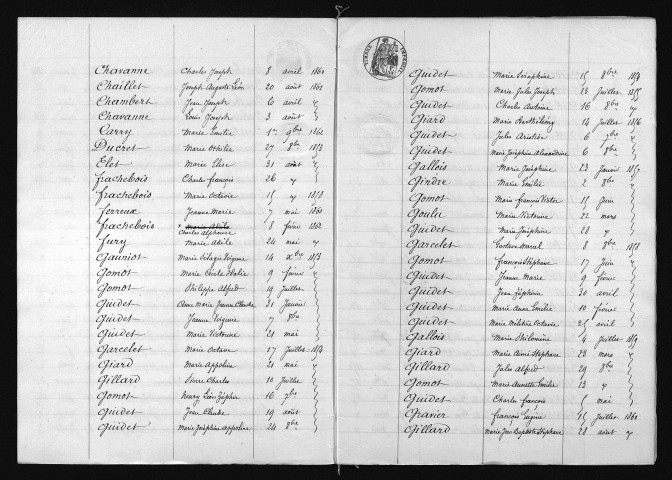 Chavanne Charles Joseph 8 avril 1860
Chaillet Joseph Auguste Léon 20 août 1861
Chambert Jean Joseph 6 avril
Chavanne Louis Joseph 3 août
Carry Marie Emilie 1er 9bre 1862
Ducret Marie Othilie 27 8bre 1853
Elet Marie Elise 31 août
frachebois Charles françois 26
frachebois Marie Octavie 15 1858
ferreux Jeanne Marie 7 mai 1860
frachebois Marie Adèle 8 févr 1862
Charles Alphonse
fury Marie Adèle 24 mai
Gauniot Marie 14 Xbre 1853
Gomot Marie Cécile 9 février
Gomot Philippe Alfred 19 Juillet
Guidet Marie Jeanne Claude 31 Janvier
Guidet Jeanne Virginie 7 8bre
Guidet Marie Victorine 21 mai
Garcelet Marie Octave 17 Juillet 1854
Giard Marie Appoline 21 mai
Gillard Pierre Charles 10 Juillet
Gomot Henry Léon Zéphir 16 7bre
Guidet Jean Claude 19 août
Guidet Marie Joséphine appoline 24 8bre
Guidet Marie Séraphine 15 8bre 1854
Gomot Marie Jules Joseph 23 Juillet 1855
Guidet Charles Antoine 16 8bre
Giard Marie Barthélemy 14 Juillet 1856
Guidet Jules Aristide 6 7bre
Guidet Marie Joséphine Alexandrine 6 8bre
Gallois Marie Joséphine 23 Janvier 1857
Gindre Marie Emilie 2 8bre
Gomot Marie françois Victor 15 Juin
Goulu Marie Victorine 22 mars
Guidet Marie Joséphine 28
Garcelet Gustave Marcel 8 8bre 1858
Gomot françois Stéphane 17 Juin
Guidet Jeanne Marie 9 févr
Guidet Jean Zéphirin 30 avril
Guidet Marie Anne Emilie 10 févr
Guidet Marie Octavie 25 avril
Gallois Marie Philomène 4 Juillet 1859
Giard Marie Aimé Stéphane 23 mars
Gillard Jules Alfred 29 8bre
Gomot Marie Emilie 13
Guidet Charles françois 5 mai
Gravier françois Eugène 15 Juillet 1860
Gillard Marie Jean Baptiste Stéphane 28 août